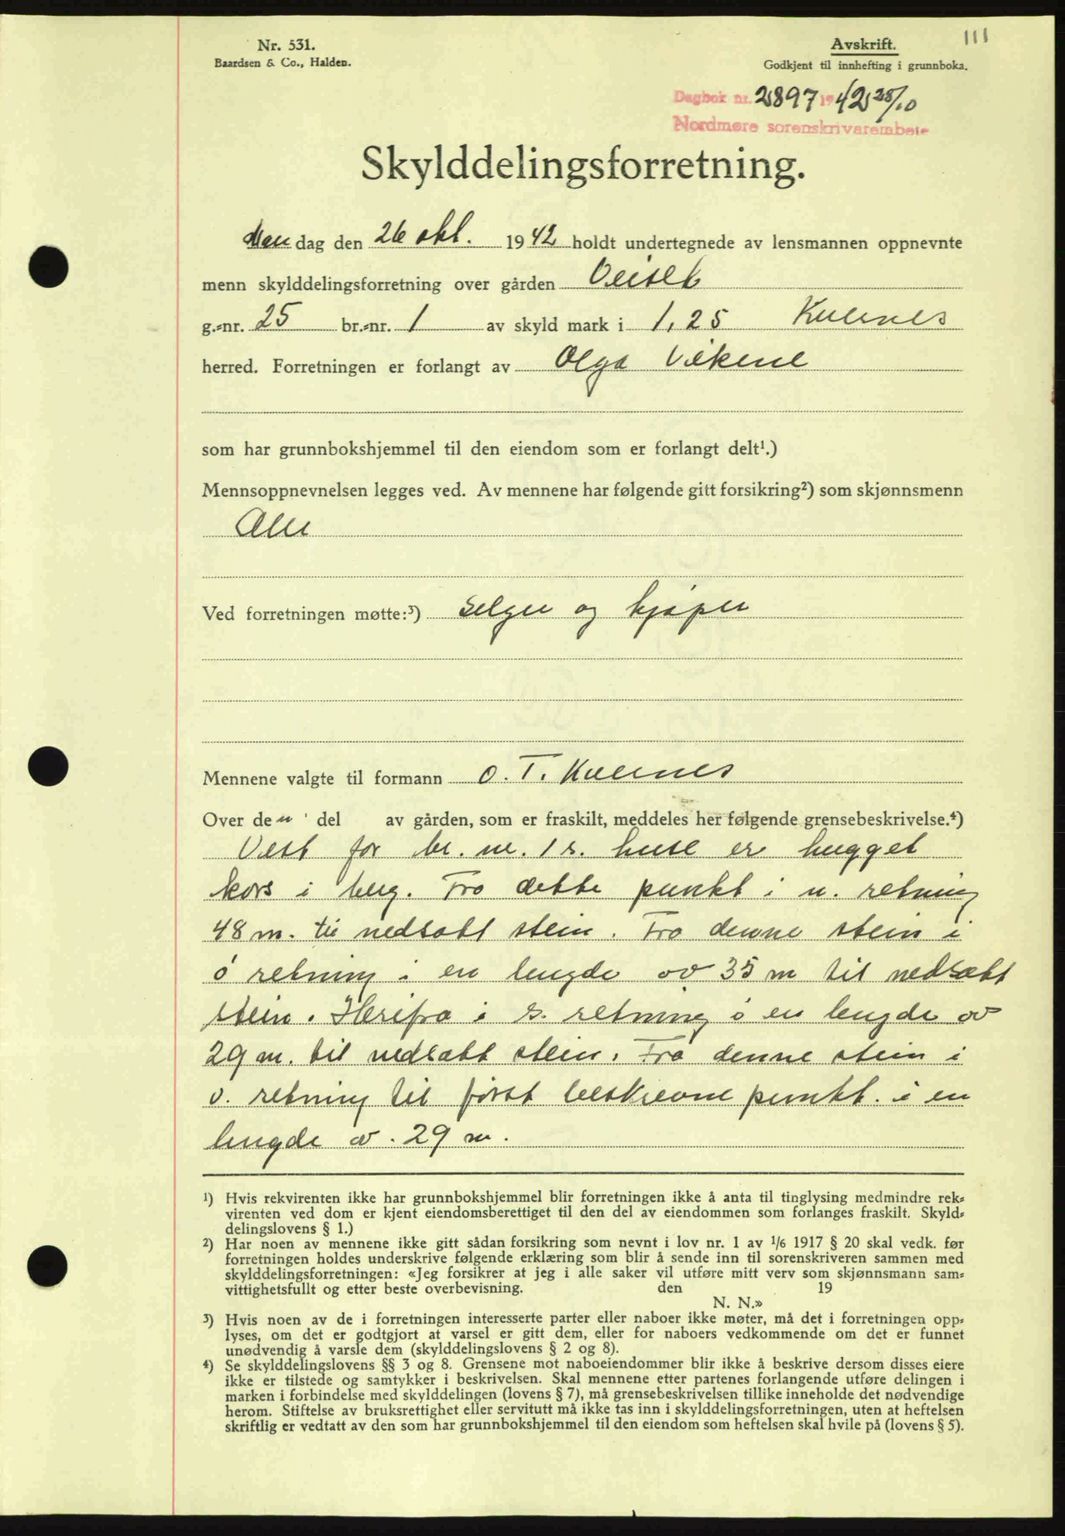 111
Nr. 531.
Baardsen & Co., Halden.
Avskrift.
Godkjent til innhefting i grunnboka.
Dagbok nr. 2897 1942 28/10
Nordmøre sorenskrivarembete
Skylddelingsforretning.
Mandag den 26 okt. 1942 holdt undertegnede av lensmannen oppnevnte
menn skylddelingsforretning over gården Veiset
g.=nr. 25 br.=nr. 1 av skyld mark i 1,25 Kvernes
herred. Forretningen er forlangt av Olga Vikene
som har grunnbokshjemmel til den eiendom som er forlangt delt¹.)
Mennsoppnevnelsen legges ved. Av mennene har følgende gitt forsikring²) som skjønnsmenn
Alle
Ved forretningen møtte:³) Selger og kjøper
Mennene valgte til formann O. T. Kvernes
Over den del av gården, som er fraskilt, meddeles her følgende grensebeskrivelse.⁴)
Vest for br. nr. 1 s. huse er hugget
kors i berg. Fra dette punkt i n. retning
48 m. til nedsatt stein. Fra denne stein i
ø retning i en lengde av 35 m til nedsatt
stein. Herifra i s. retning i en lengde av
29 m. til nedsatt stein. Fra denne stein i
v. retning til først beskrevne punkt i en
lengde av 29 m.
¹) Hvis rekvirenten ikke har grunnbokshjemmel blir forretningen ikke å anta til tinglysing medmindre rek=
virenten ved dom er kjent eiendomsberettiget til den del av eiendommen som forlanges fraskilt. Skyld=
delingslovens § 1.)
²) Har noen av mennene ikke gitt sådan forsikring som nevnt i lov nr. 1 av 1/6 1917 § 20 skal vedk. før
forretningen holdes underskrive følgende erklæring som blir å sende inn til sorenskriveren sammen med
skylddelingsforretningen: «Jeg forsikrer at jeg i alle saker vil utføre mitt verv som skjønnsmann sam=
vittighetsfullt og etter beste overbevisning. den 19
N. N.»
³) Hvis noen av de i forretningen interesserte parter eller naboer ikke møter, må det i forretningen opp=
lyses, om det er godtgjort at varsel er gitt dem, eller for naboers vedkommende om det er funnet
unødvendig å varsle dem (skylddelingslovens § 2 og 8).
⁴) Se skylddelingslovens §§ 3 og 8. Grensene mot naboeiendommer blir ikke å beskrive dersom disses eiere
ikke er tilstede og samtykker i beskrivelsen. Skal mennene etter partenes forlangende utføre delingen i
marken i forbindelse med skylddelingen (lovens § 7), må grensebeskrivelsen tillike inneholde det nødvendige
herom. Stiftelse av bruksrettighet eller servitutt må ikke tas inn i skylddelingsforretningen, uten at heftelsen
skriftlig er vedtatt av den som har grunnbokshjemmel til den eiendom som heftelsen skal hvile på (lovens § 5).